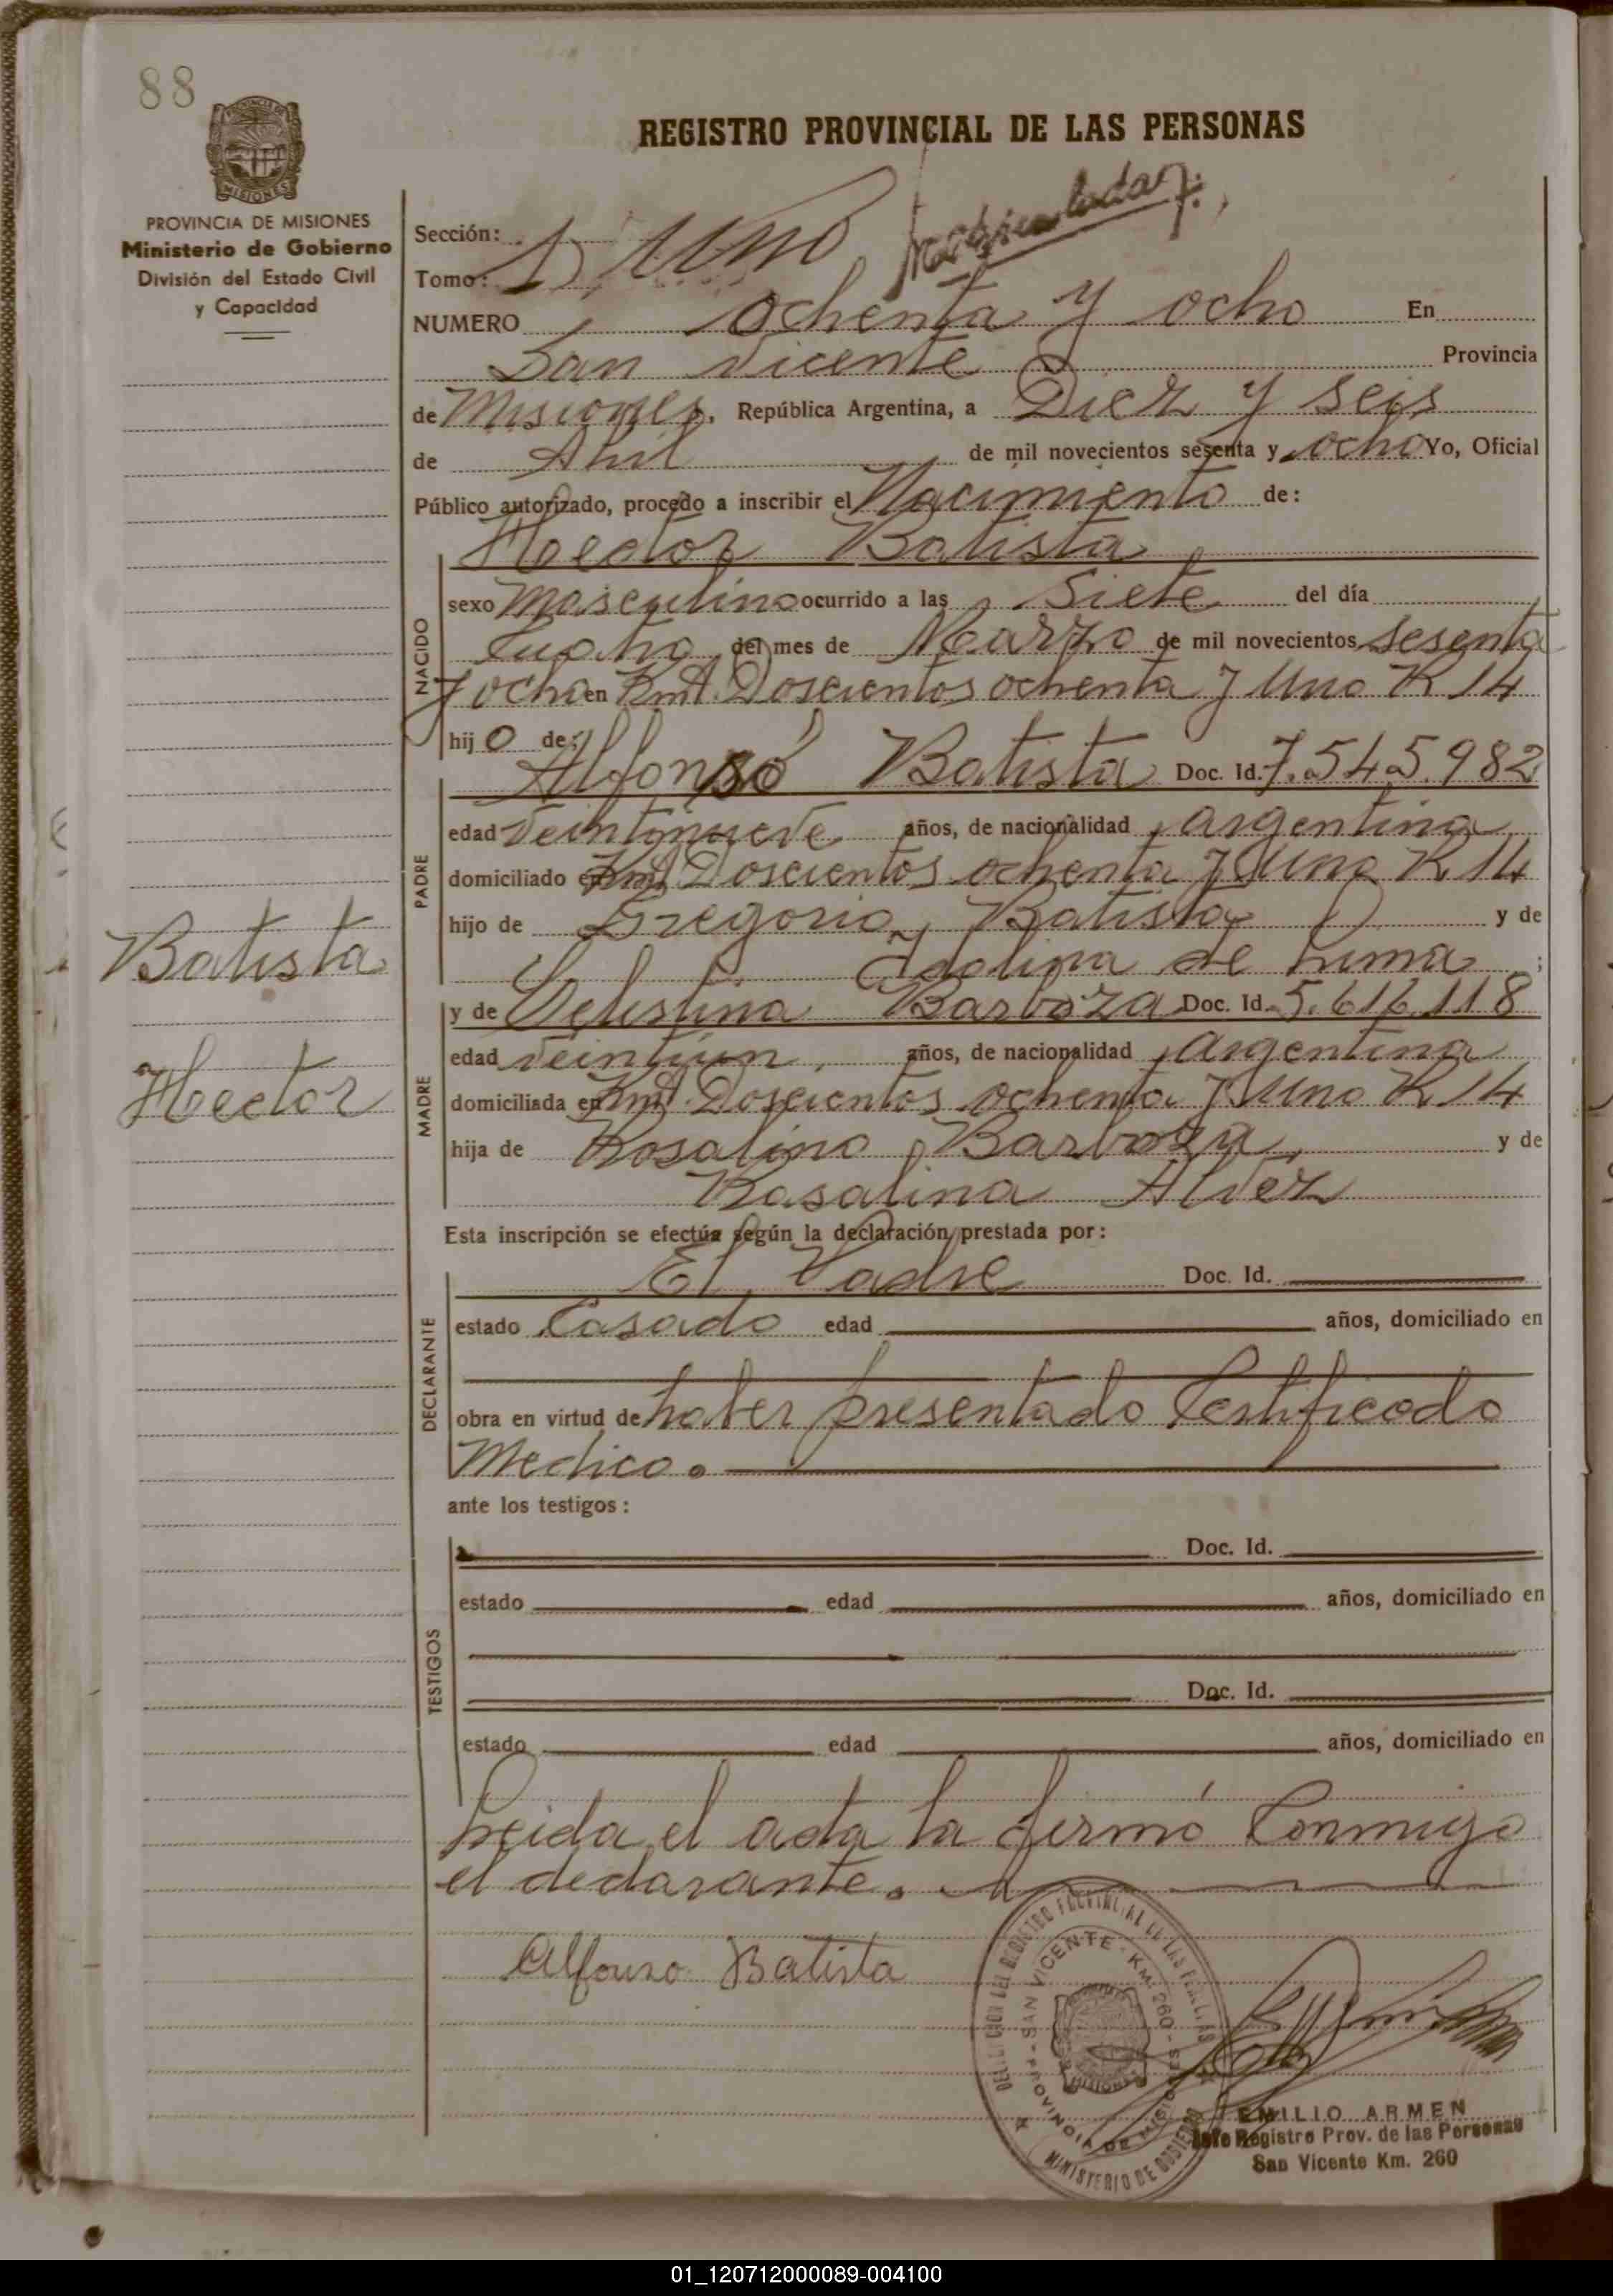 88
REGISTRO PROVINCIAL DE LAS PERSONAS
PROVINCIA DE MISIONES
Ministerio de Gobierno
División del Estado Civil
y Capacidad
Sección:
Tomo: 1) uno
NUMERO ochenta y ocho En
San Vicente Provincia
de Misiones, República Argentina, a Diez y seis
de Abril de mil novecientos sesenta y ocho Yo, Oficial
Público autorizado, procedo a inscribir el Nacimiento de:
Hector Batista
NACIDO
sexo Masculino ocurrido a las Siete del día
Cuatro del mes de Marzo de mil novecientos sesenta
y ocho en Kmt. Doscientos ochenta y Uno R 14
hijo de:
PADRE
Alfonso Batista Doc. Id. 7.545.982
edad veintinueve años, de nacionalidad argentina
domiciliado en Kmt Doscientos ochenta y Uno R 14
hijo de Gregorio Batista y de
de Lima;
MADRE
y de Barboza Doc. Id. 5.616.118
edad veintiun años, de nacionalidad argentina
domiciliada en Kmt. Doscientos ochenta y Uno R 14
hija de Rosalino Barboza y de
Rosalina Alvez
Esta inscripción se efectúa según la declaración prestada por:
DECLARANTE
El Padre Doc. Id.
estado Casado edad años, domiciliado en
obra en virtud de haber presentado Certificado
Medico.
ante los testigos:
TESTIGOS
Doc. Id.
estado edad años, domiciliado en
Doc. Id.
estado edad años, domiciliado en
Leida el acta la firmó Conmigo
el declarante.
Alfonso Batista
Batista
Hector
DELEGACION DEL REGISTRO PROVINCIAL DE LAS PERSONAS
SAN VICENTE - KM. 260 -
PROVINCIA DE MISIONES
MISIONES
MINISTERIO DE GOBIERNO
EMILIO ARMEN
Jefe Registro Prov. de las Personas
San Vicente Km. 260
01_120712000089-004100